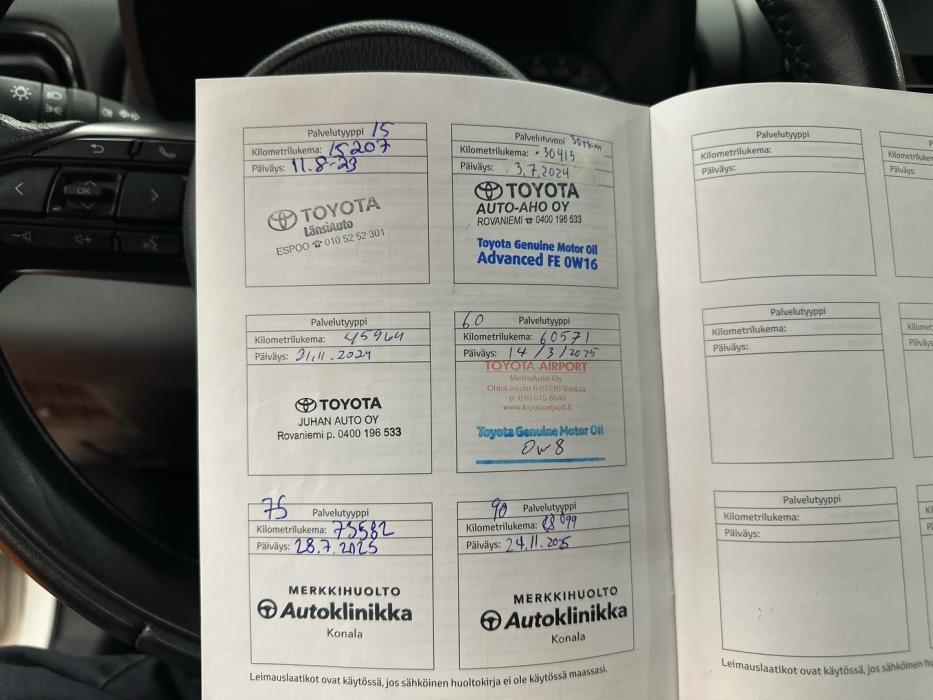 Palvelutyyppi 15
Kilometrilukema: 15207
Päiväys: 11.8-23
TOYOTA
LänsiAuto
ESPOO ☎ 010 52 52 301
Palvelutyyppi 30tkm
Kilometrilukema: 30415
Päiväys: 3.7.2024
TOYOTA
AUTO-AHO OY
ROVANIEMI ☎ 0400 196 533
Toyota Genuine Motor Oil
Advanced FE 0W16
Palvelutyyppi
Kilometrilukema: 45964
Päiväys: 21.11.2024
TOYOTA
JUHAN AUTO OY
Rovaniemi p. 0400 196 533
60 Palvelutyyppi
Kilometrilukema: 60571
Päiväys: 14/3/2025
TOYOTA AIRPORT
MetroAuto Oy
Ohtolankatu 6 01510 Vantaa
p. 010 615 8640
www.toyotaairport.fi
Toyota Genuine Motor Oil
0w8
75 Palvelutyyppi
Kilometrilukema: 73582
Päiväys: 28.7.2025
MERKKIHUOLTO
Autoklinikka
Konala
90 Palvelutyyppi
Kilometrilukema: 88099
Päiväys: 24.11.2025
MERKKIHUOLTO
Autoklinikka
Konala
Leimauslaatikot ovat käytössä, jos sähköinen huoltokirja ei ole käytössä maassasi.
Palvelutyyppi
Kilometrilukema:
Päiväys:
Palvelutyyppi
Kilometrilukema:
Päiväys:
Palvelutyyppi
Kilometrilukema:
Päiväys:
Päiväys:
Leimauslaatikot ovat käytössä, jos sähköinen
OK